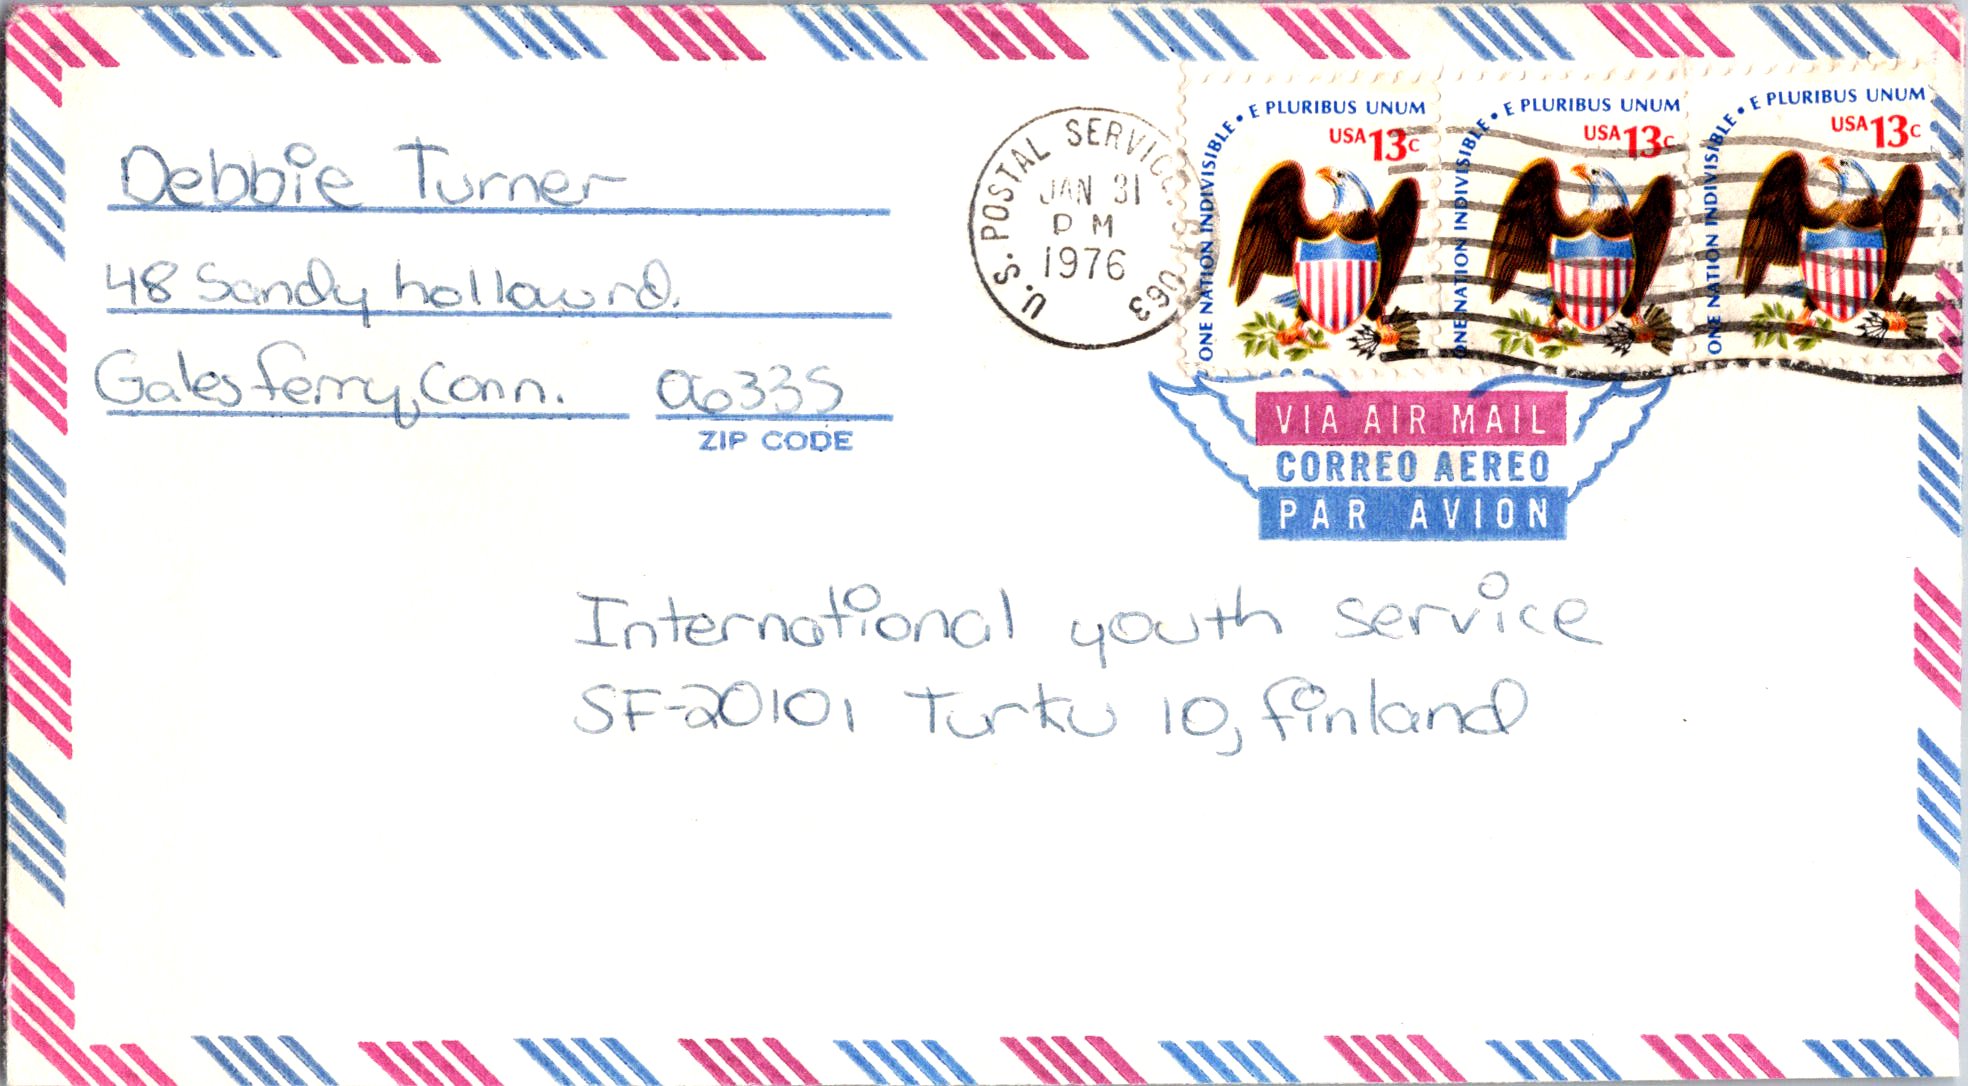 Debbie Turner
48 Sandy hollow rd.
Gales ferry, Conn. 06335
ZIP CODE
U.S. POSTAL SERVICE
JAN 31
PM
1976
063
ONE NATION INDIVISIBLE • E PLURIBUS UNUM
USA 13c
ONE NATION INDIVISIBLE • E PLURIBUS UNUM
USA 13c
ONE NATION INDIVISIBLE • E PLURIBUS UNUM
USA 13c
VIA AIR MAIL
CORREO AEREO
PAR AVION
International youth service
SF-20101 Turku 10, finland